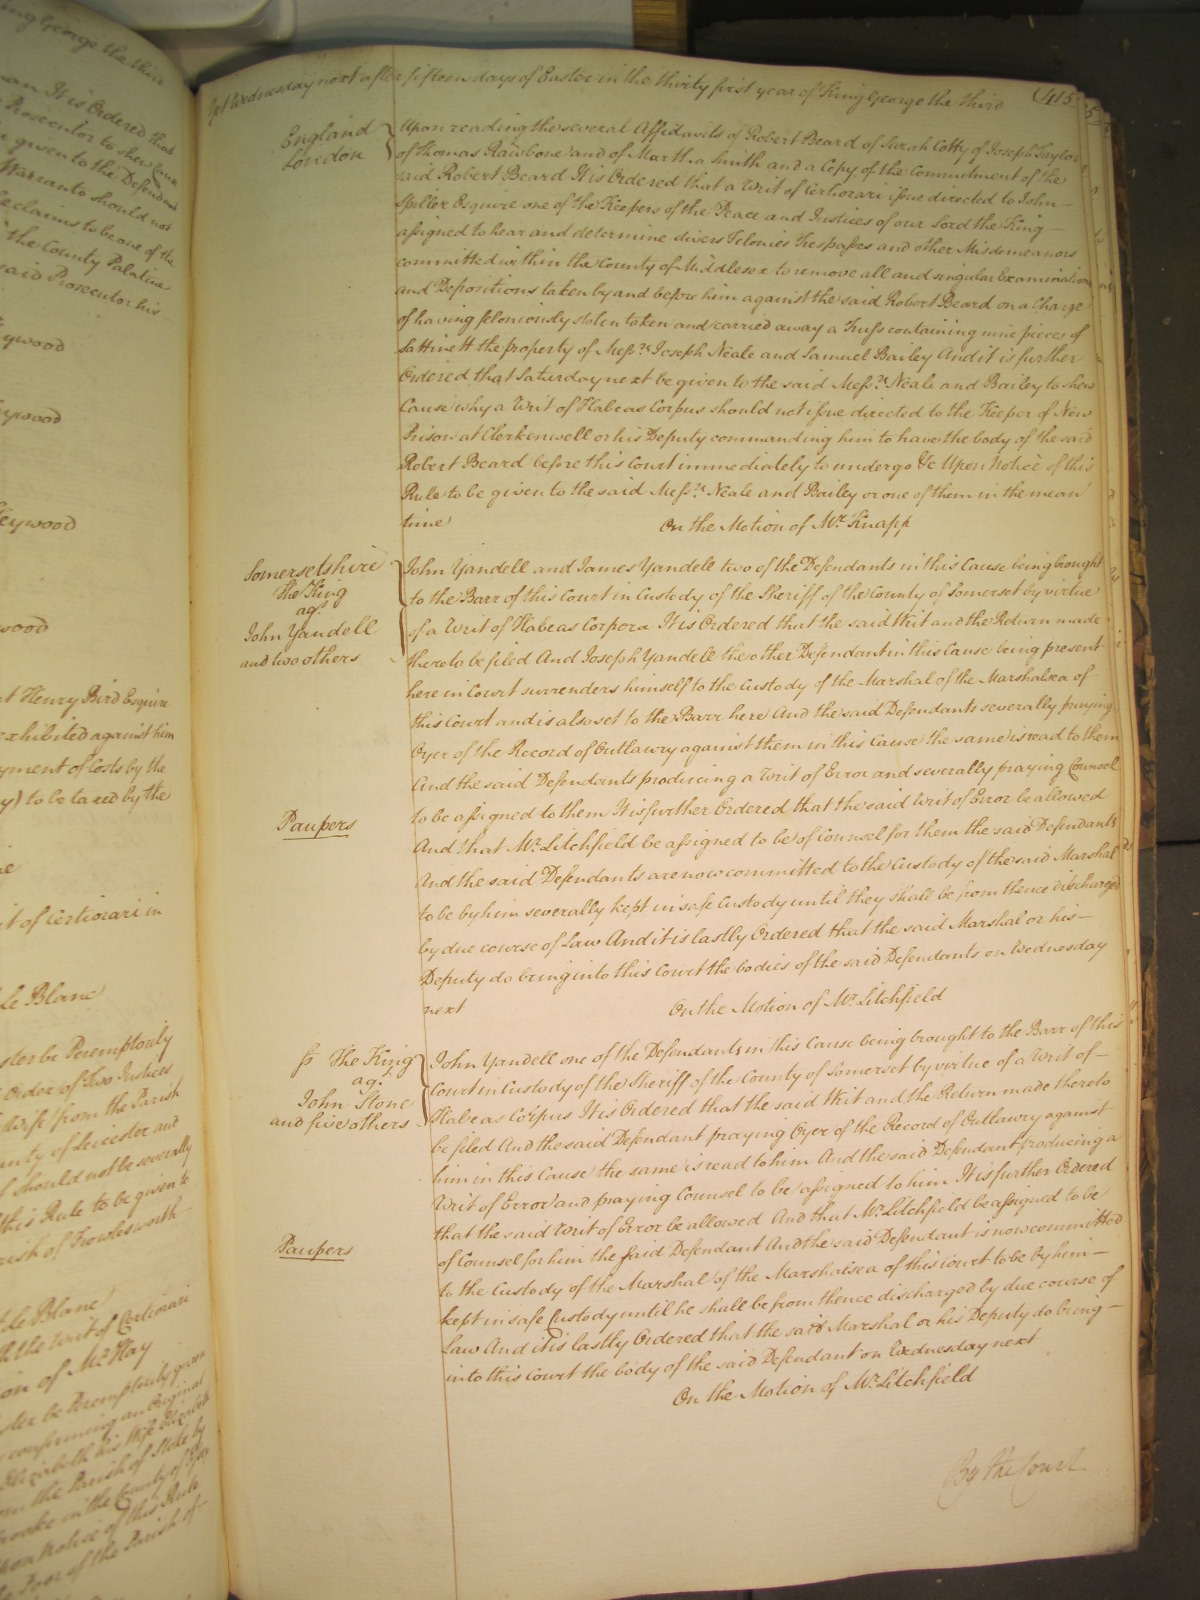 ing George the third
man It is Ordered that
Prosecutor to shew Cause
given to the Defendant
Warranto should not
claims to be one of the
the County Palatine
said Prosecutor his
eywood
eywood
eywood
wood
t Henry Bird Esquire
exhibited against him
yment of Costs by the
y) to be taxed by the
it of Certiorari in
Le Blanc
ster be Peremptorily
Order of Two Justices
Wife from the Parish
unty of Leicester and
should not be severally
this Rule to be given to
rish of Frowlesworth
t Le Blanc
the Writ of Certiorari
on of Mr. Hay
ster be Peremptorily given
confirming an Original
Elizabeth his Wife Elizabeth
om the Parish of Stoke by
in the County of
upon Notice of this Rule
Poor of the Parish of
Yet Wednesday next after fifteen days of Easter in the thirty first year of King George the third (415
England
London
Upon reading the several Affidavits of Robert Beard of Sarah Cotty of Joseph Taylor
of Thomas Rawbone and of Martha Smith and a Copy of the Commitment of the
said Robert Beard It is Ordered that a Writ of Certiorari issue directed to John
Spiller Esquire one of the Keepers of the Peace and Justices of our Lord the King
assigned to hear and determine divers Felonies Trespasses and other Misdemeanors
committed within the County of Middlesex to remove all and singular Examinations
and Depositions taken by and before him against the said Robert Beard on a Charge
of having feloniously stolen taken and carried away a Truss containing nine pieces of
Sattinett the property of Messrs. Joseph Neale and Samuel Bailey And it is further
Ordered that Saturday next be given to the said Messrs. Neale and Bailey to shew
Cause why a Writ of Habeas Corpus should not issue directed to the Keeper of New
Prison at Clerkenwell or his Deputy commanding him to have the body of the said
Robert Beard before this Court immediately to undergo &c Upon Notice of this
Rule to be given to the said Messrs. Neale and Bailey or one of them in the mean
time On the Motion of Mr. Knapp
Somersetshire
The King
agt.
John Yandell
and two others
John Yandell and James Yandell two of the Defendants in this Cause being brought
to the Barr of this Court in Custody of the Sheriff of the County of Somerset by virtue
of a Writ of Habeas Corpora It is Ordered that the said Writ and the Return made
thereto be filed And Joseph Yandell the other Defendant in this Cause being present
here in Court surrenders himself to the Custody of the Marshal of the Marshalsea of
this Court and is also set to the Barr here And the said Defendants severally praying
Oyer of the Record of Outlawry against them in this Cause the same is read to them
And the said Defendants producing a Writ of Error and severally praying Counsel
to be assigned to them It is further Ordered that the said Writ of Error be allowed
Paupers
And that Mr. Litchfield be assigned to be of Counsel for them the said Defendants
And the said Defendants are now committed to the Custody of the said Marshal
to be by him severally kept in safe Custody until they shall be from thence discharged
by due course of Law And it is lastly Ordered that the said Marshal or his
Deputy do bring into this Court the bodies of the said Defendants on Wednesday
next On the Motion of Mr. Litchfield
The King
agt.
John Stone
and five others
John Yandell one of the Defendants in this Cause being brought to the Barr of this
Court in Custody of the Sheriff of the County of Somerset by virtue of a Writ of
Habeas Corpus It is Ordered that the said Writ and the Return made thereto
be filed And the said Defendant praying Oyer of the Record of Outlawry against
him in this Cause the same is read to him And the said Defendant producing a
Writ of Error and praying Counsel to be assigned to him It is further Ordered
that the said Writ of Error be allowed And that Mr. Litchfield be assigned to be
Paupers
of Counsel for him the said Defendant And the said Defendant is now committed
to the Custody of the Marshal of the Marshalsea of this Court to be by him
kept in safe Custody until he shall be from thence discharged by due course of
Law And it is lastly Ordered that the said Marshal or his Deputy do bring
into this Court the body of the said Defendant on Wednesday next
On the Motion of Mr. Litchfield
By the Court